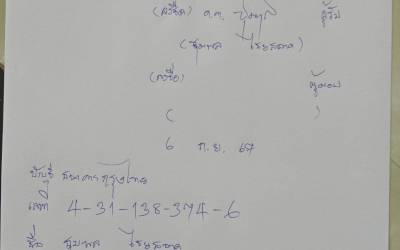 (ลงชื่อ) ด.ต. ผู้รับ
(ชุมพล ไชยสกาศ)
(ลงชื่อ) ผู้มอบ
( )
6 ก.ย. 67
บัญชี ธนาคารกรุงไทย
เลขที่ 4-31-138-374-6
ชื่อ ชุมพล